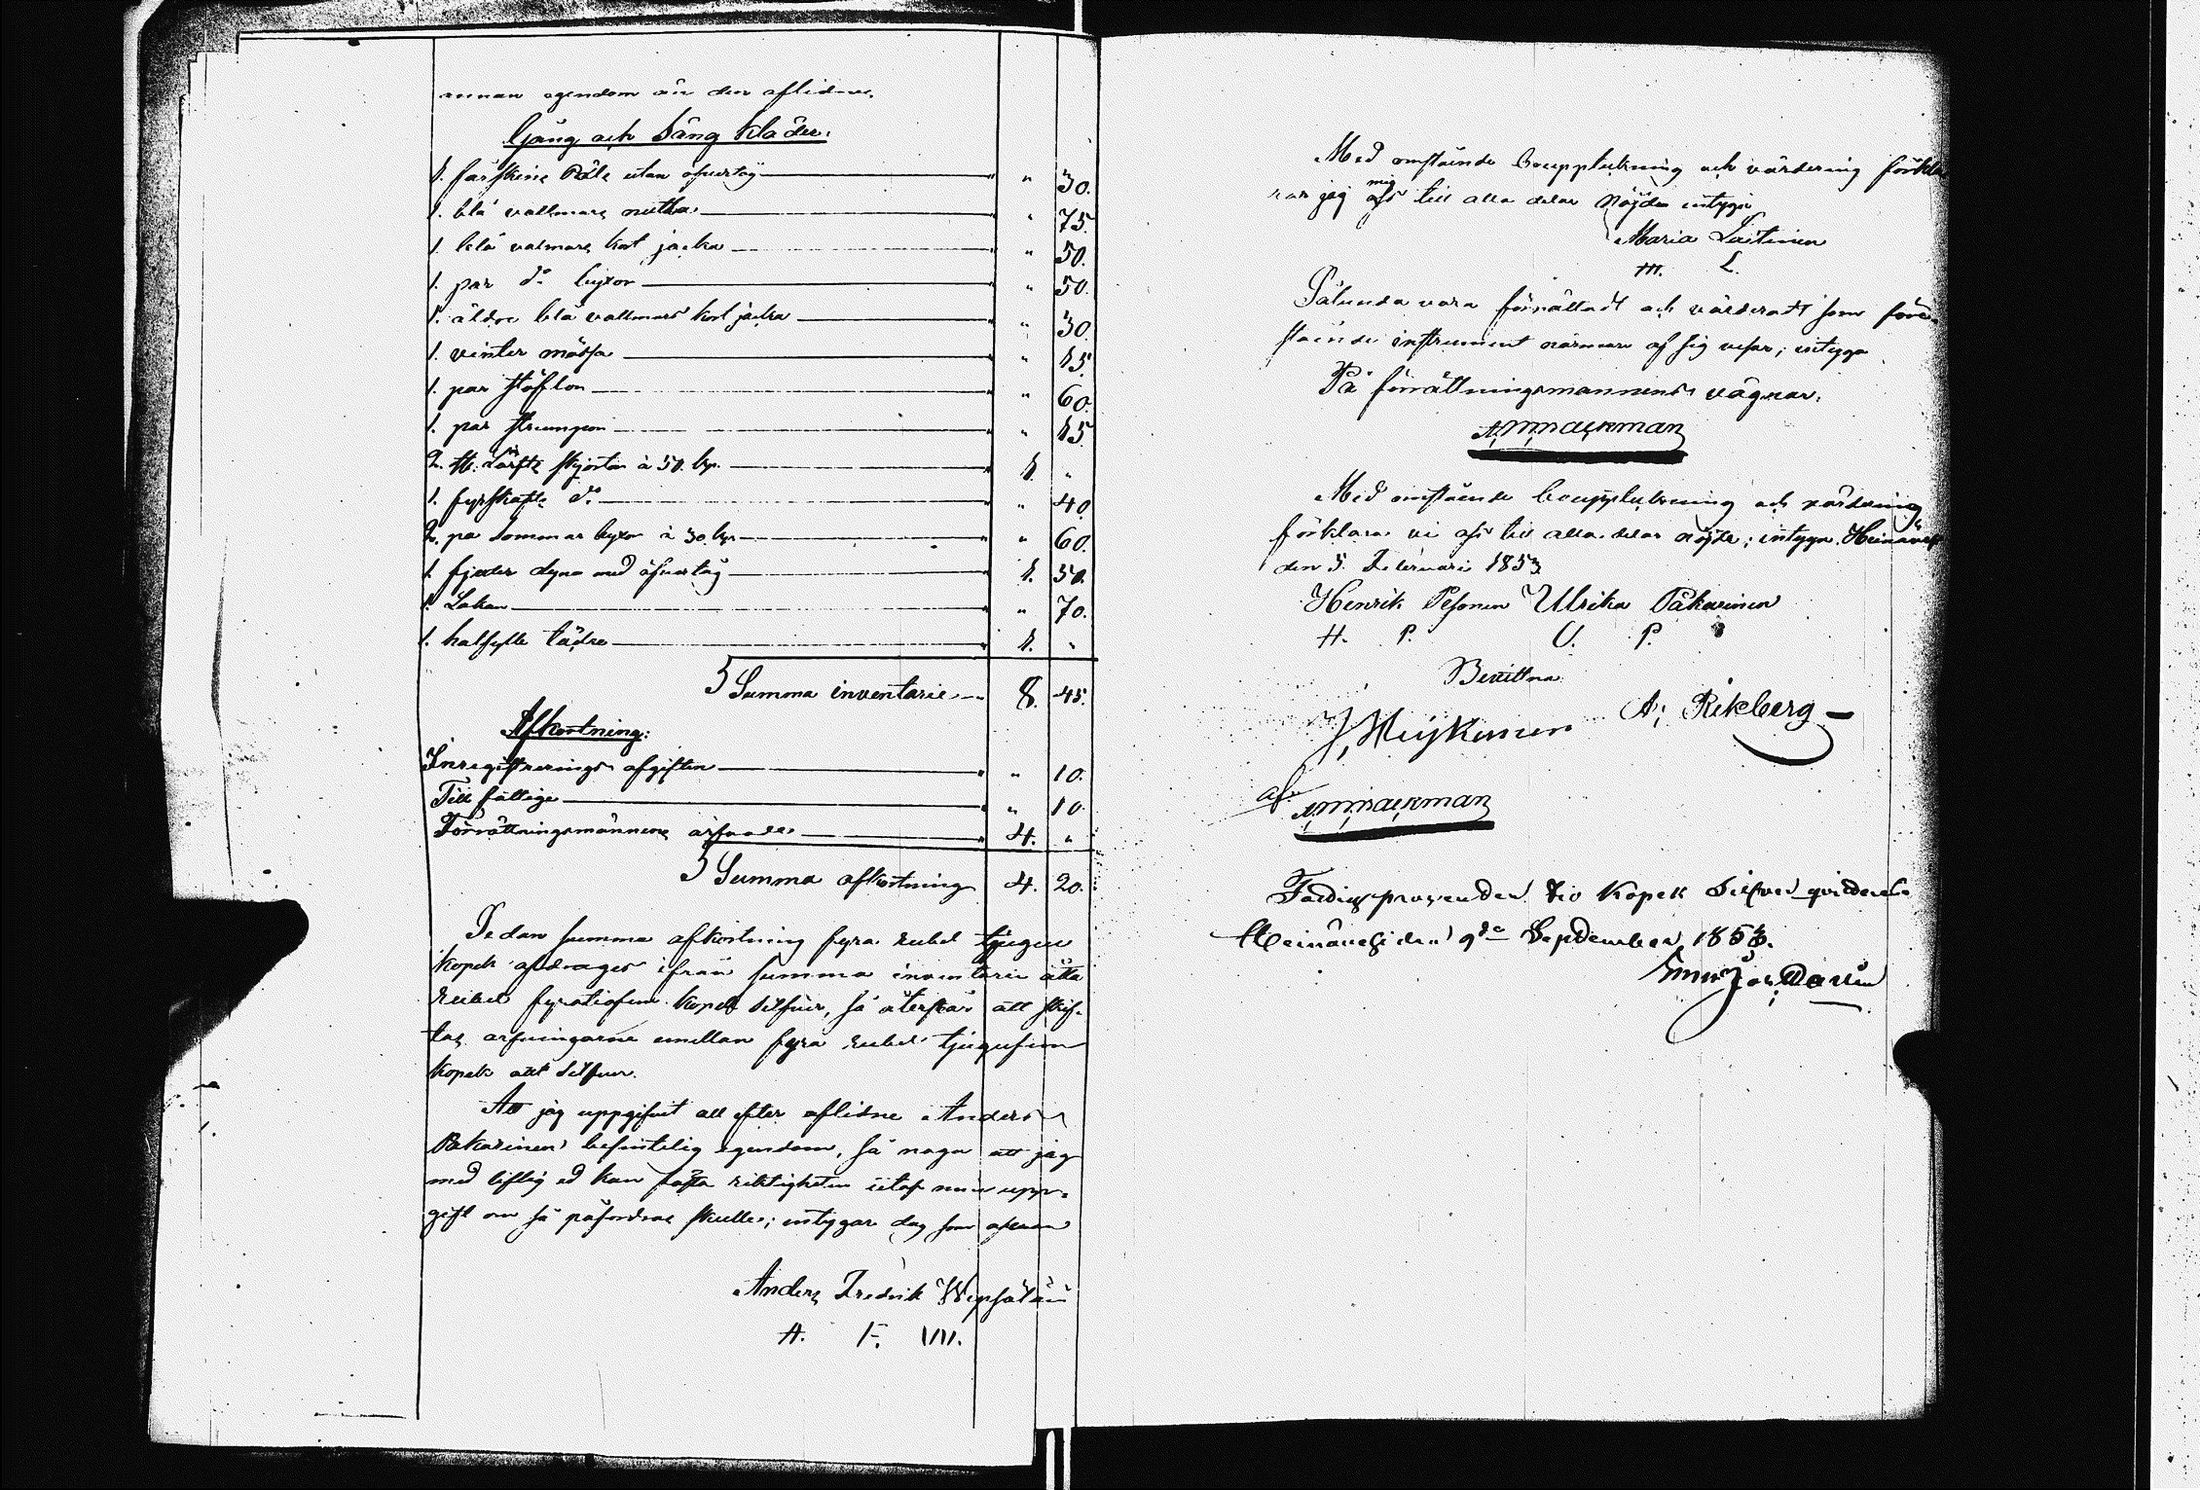 annan egendom än den aflidne.
Gång och Säng kläder.
1. fårskins Päls utan öfvertyg " 30.
1. blå vallmars mitta " 75.
1. blå valmars kort jacka " 50.
1. par d:o byxor " 50.
1. äldre blå vallmars kort jacka " 30.
1. vinter mössa " 15.
1. par stöflor " 60.
1. par strumpor " 15.
2. st. Lärfts skjortor à 50. kop. 1. "
1. fyrskafts d:o " 40.
2. par Sommar byxor à 30 kop " 60.
1. fjäder dyna med öfvertyg 1. 50.
1. Lakan " 70.
1. halfylle täcke 1. "
Summa inventarie 8. 45.
Afkortning:
Inregistrerings afgiften " 10.
Till fattige " 10.
Förrättningsmännens arfvode 4. "
Summa afkortning 4. 20.
Sedan summa afkortning fyra rubel tjugu
kopek afdrages ifrån summa inventarie åtta
rubel fyratiofem kopek silfver, så återstår att skif-
tas arfvingarne emellan fyra rubel tjugufem
kopek allt silfver.
Att jag uppgifvit all efter aflidne Anders
Pakarinen befintelig egendom, så noga att jag
med liflig ed kan fästa riktigheten utaf min upp-
gift om så påfordras skulle; intygar dag som ofvan
Anders Fredrik Wepsäläin
A. F. W.
Med omstående bouppteckning och värdering förkla
rar jag mig till alla delar nöjd intygar
Maria Laitinen
M. L.
Sålunda vara förrättadt och värderadt som före-
stående instrument närmare af sig visar; intyga
På förrättningsmannens vägnar.
A, M, Mackman
Med omstående bouppteckning och värdering
förklara vi oss till alla delar nöjde; intyga. Heinävesi
den 5. Februari 1853
Henrik Pesonen Ulrika Pakarinen
H. P. U. P.
Bevittna
A; Rikberg
af
A, M, Mackman
Fattigprocenden tio Kopek Silfver qvitteras
Heinävesi den 9de September 1853.